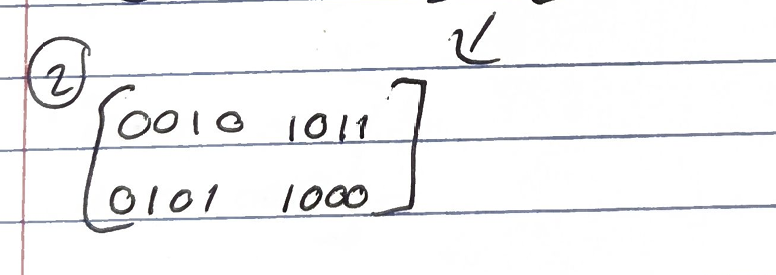 ②
[0010 1011]
[0101 1000]